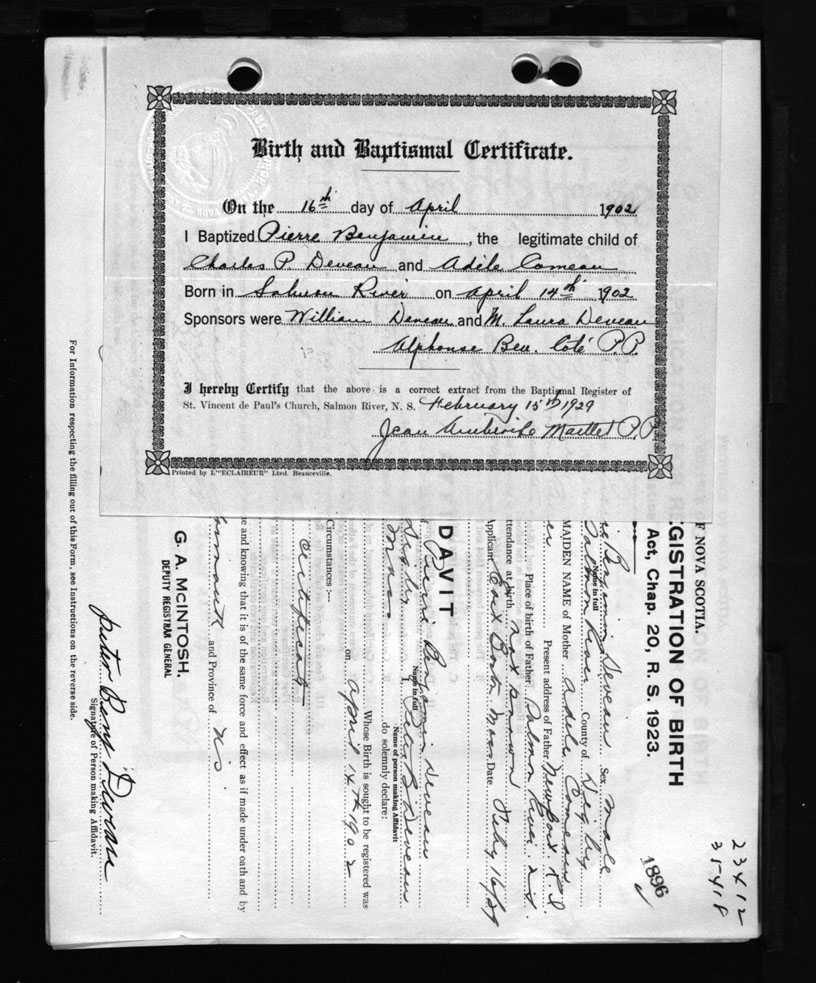 Birth and Baptismal Certificate.
On the 16th day of April 1902
I Baptized Pierre Benjamin, the legitimate child of
Charles P. Deveau and Adile Comeau
Born in Salmon River on April 14th 1902
Sponsors were William Deveau and M. Laura Deveau
Alphonse Ben. Coté P.P.
I hereby Certify that the above is a correct extract from the Baptismal Register of
St. Vincent de Paul's Church, Salmon River, N. S. February 15th 1929
Jean Maillet P.P.
Printed by L'"ECLAIREUR" Lted. Beauceville.
23412
31-418
1896
F NOVA SCOTIA.
GISTRATION OF BIRTH
Act, Chap. 20, R. S. 1923.
Benjamin Deveau Sex male
Name in full
Salmon River County of Digby
MAIDEN NAME of Mother Adile Comeau
Present address of Father Newport. R.I.
Place of birth of Father Salmon River. N.S.
ttendance at birth not known
Applicant East Boston Mass. Date Feby 16/29
DAVIT
Pierre Benjamin Deveau
Name in full
Peter B Deveau
Name of person making Affidavit
Digby
do solemnly declare:
Whose Birth is sought to be registered was
on April 14th 1902
Circumstances :—
Certificate
ue and knowing that it is of the same force and effect as if made under oath and by
and Province of NS
G. A. McINTOSH.
DEPUTY REGISTRAR GENERAL
Peter Benj Deveau
Signature of Person making Affidavit.
For Information respecting the filling out of this Form, see Instructions on the reverse side.